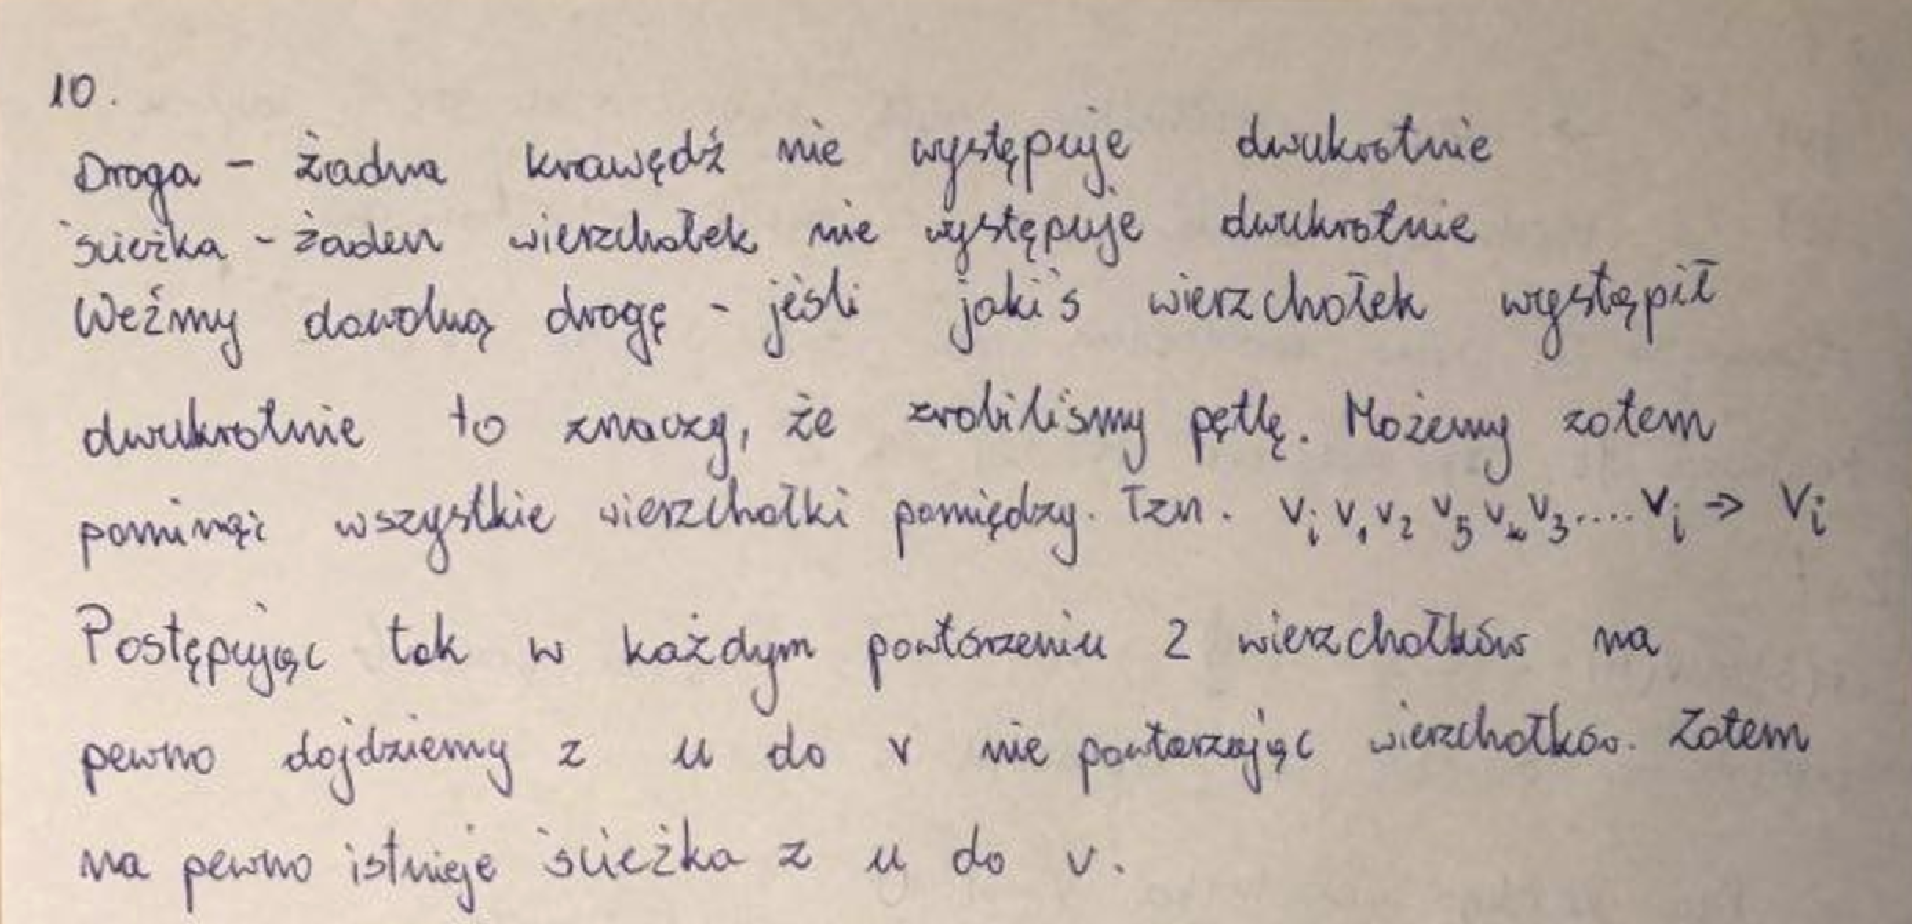 10.
Droga - żadna krawędź nie występuje dwukrotnie
ścieżka - żaden wierzchołek nie występuje dwukrotnie
Weźmy dowolną drogę - jeśli jakiś wierzchołek wystąpił
dwukrotnie to znaczy, że zrobiliśmy pętlę. Możemy zatem
pominąć wszystkie wierzchołki pomiędzy. Tzn. v_i v_1 v_2 v_5 v_k v_3 .... v_i → v_i
Postępując tak w każdym powtórzeniu 2 wierzchołków na
pewno dojdziemy z u do v nie powtarzając wierzchołków. Zatem
na pewno istnieje ścieżka z u do v.